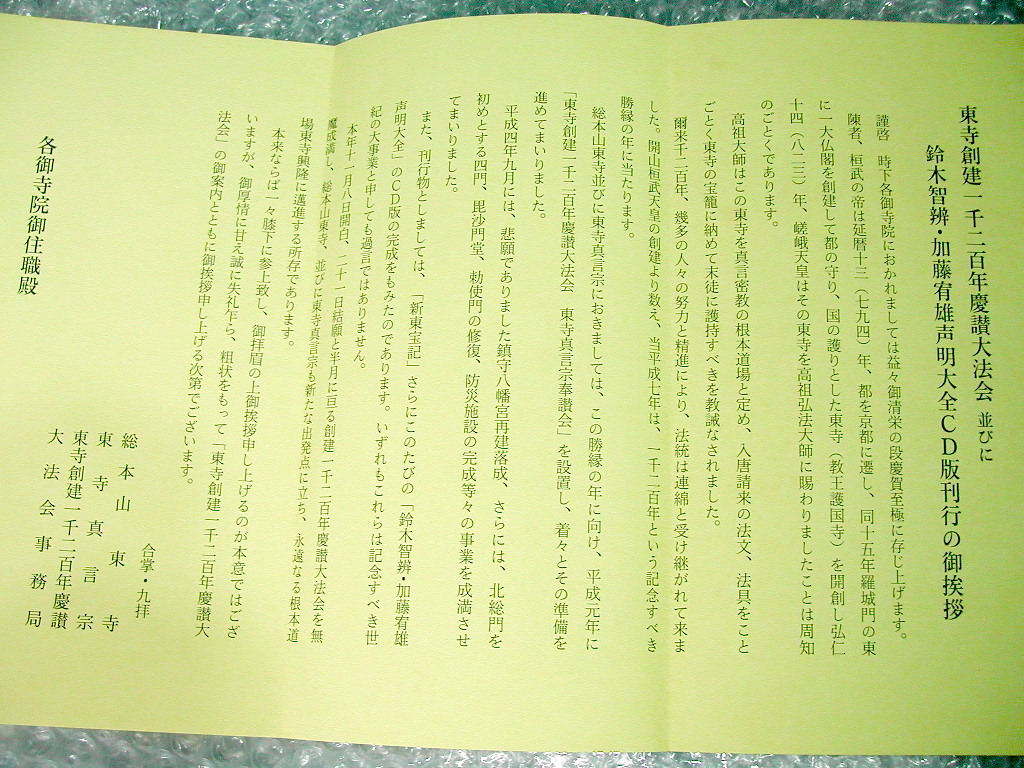 東寺創建一千二百年慶讃大法会 並びに
鈴木智辨・加藤宥雄声明大全ＣＤ版刊行の御挨拶
謹啓　時下各御寺院におかれましては益々御清栄の段慶賀至極に存じ上げます。
陳者、桓武の帝は延暦十三（七九四）年、都を京都に遷し、同十五年羅城門の東
に一大仏閣を創建して都の守り、国の護りとした東寺（教王護国寺）を開創し弘仁
十四（八二三）年、嵯峨天皇はその東寺を高祖弘法大師に賜わりましたことは周知
のごとくであります。
高祖大師はこの東寺を真言密教の根本道場と定め、入唐請来の法文、法具をこと
ごとく東寺の宝籠に納めて末徒に護持すべきを教誡なされました。
爾来千二百年、幾多の人々の努力と精進により、法統は連綿と受け継がれて来ま
した。開山桓武天皇の創建より数え、当平成七年は、一千二百年という記念すべき
勝縁の年に当たります。
総本山東寺並びに東寺真言宗におきましては、この勝縁の年に向け、平成元年に
「東寺創建一千二百年慶讃大法会　東寺真言宗奉讃会」を設置し、着々とその準備を
進めてまいりました。
平成四年九月には、悲願でありました鎮守八幡宮再建落成、さらには、北総門を
初めとする四門、毘沙門堂、勅使門の修復、防災施設の完成等々の事業を成満させ
てまいりました。
また、刊行物としましては、「新東宝記」さらにこのたびの「鈴木智辨・加藤宥雄
声明大全」のＣＤ版の完成をもみたのであります。いずれもこれらは記念すべき世
紀の大事業と申しても過言ではありません。
本年十一月八日開白、二十一日結願と半月に亘る創建一千二百年慶讃大法会を無
魔成満し、総本山東寺、並びに東寺真言宗も新たな出発点に立ち、永遠なる根本道
場東寺興隆に邁進する所存であります。
本来ならば一々膝下に参上致し、御拝眉の上御挨拶申し上げるのが本意ではござ
いますが、御厚情に甘え誠に失礼乍ら、粗状をもって「東寺創建一千二百年慶讃大
法会」の御案内とともに御挨拶申し上げる次第でございます。
合掌・九拝
総本山東寺
東寺真言宗
東寺創建一千二百年慶讃
大法会事務局
各御寺院御住職殿